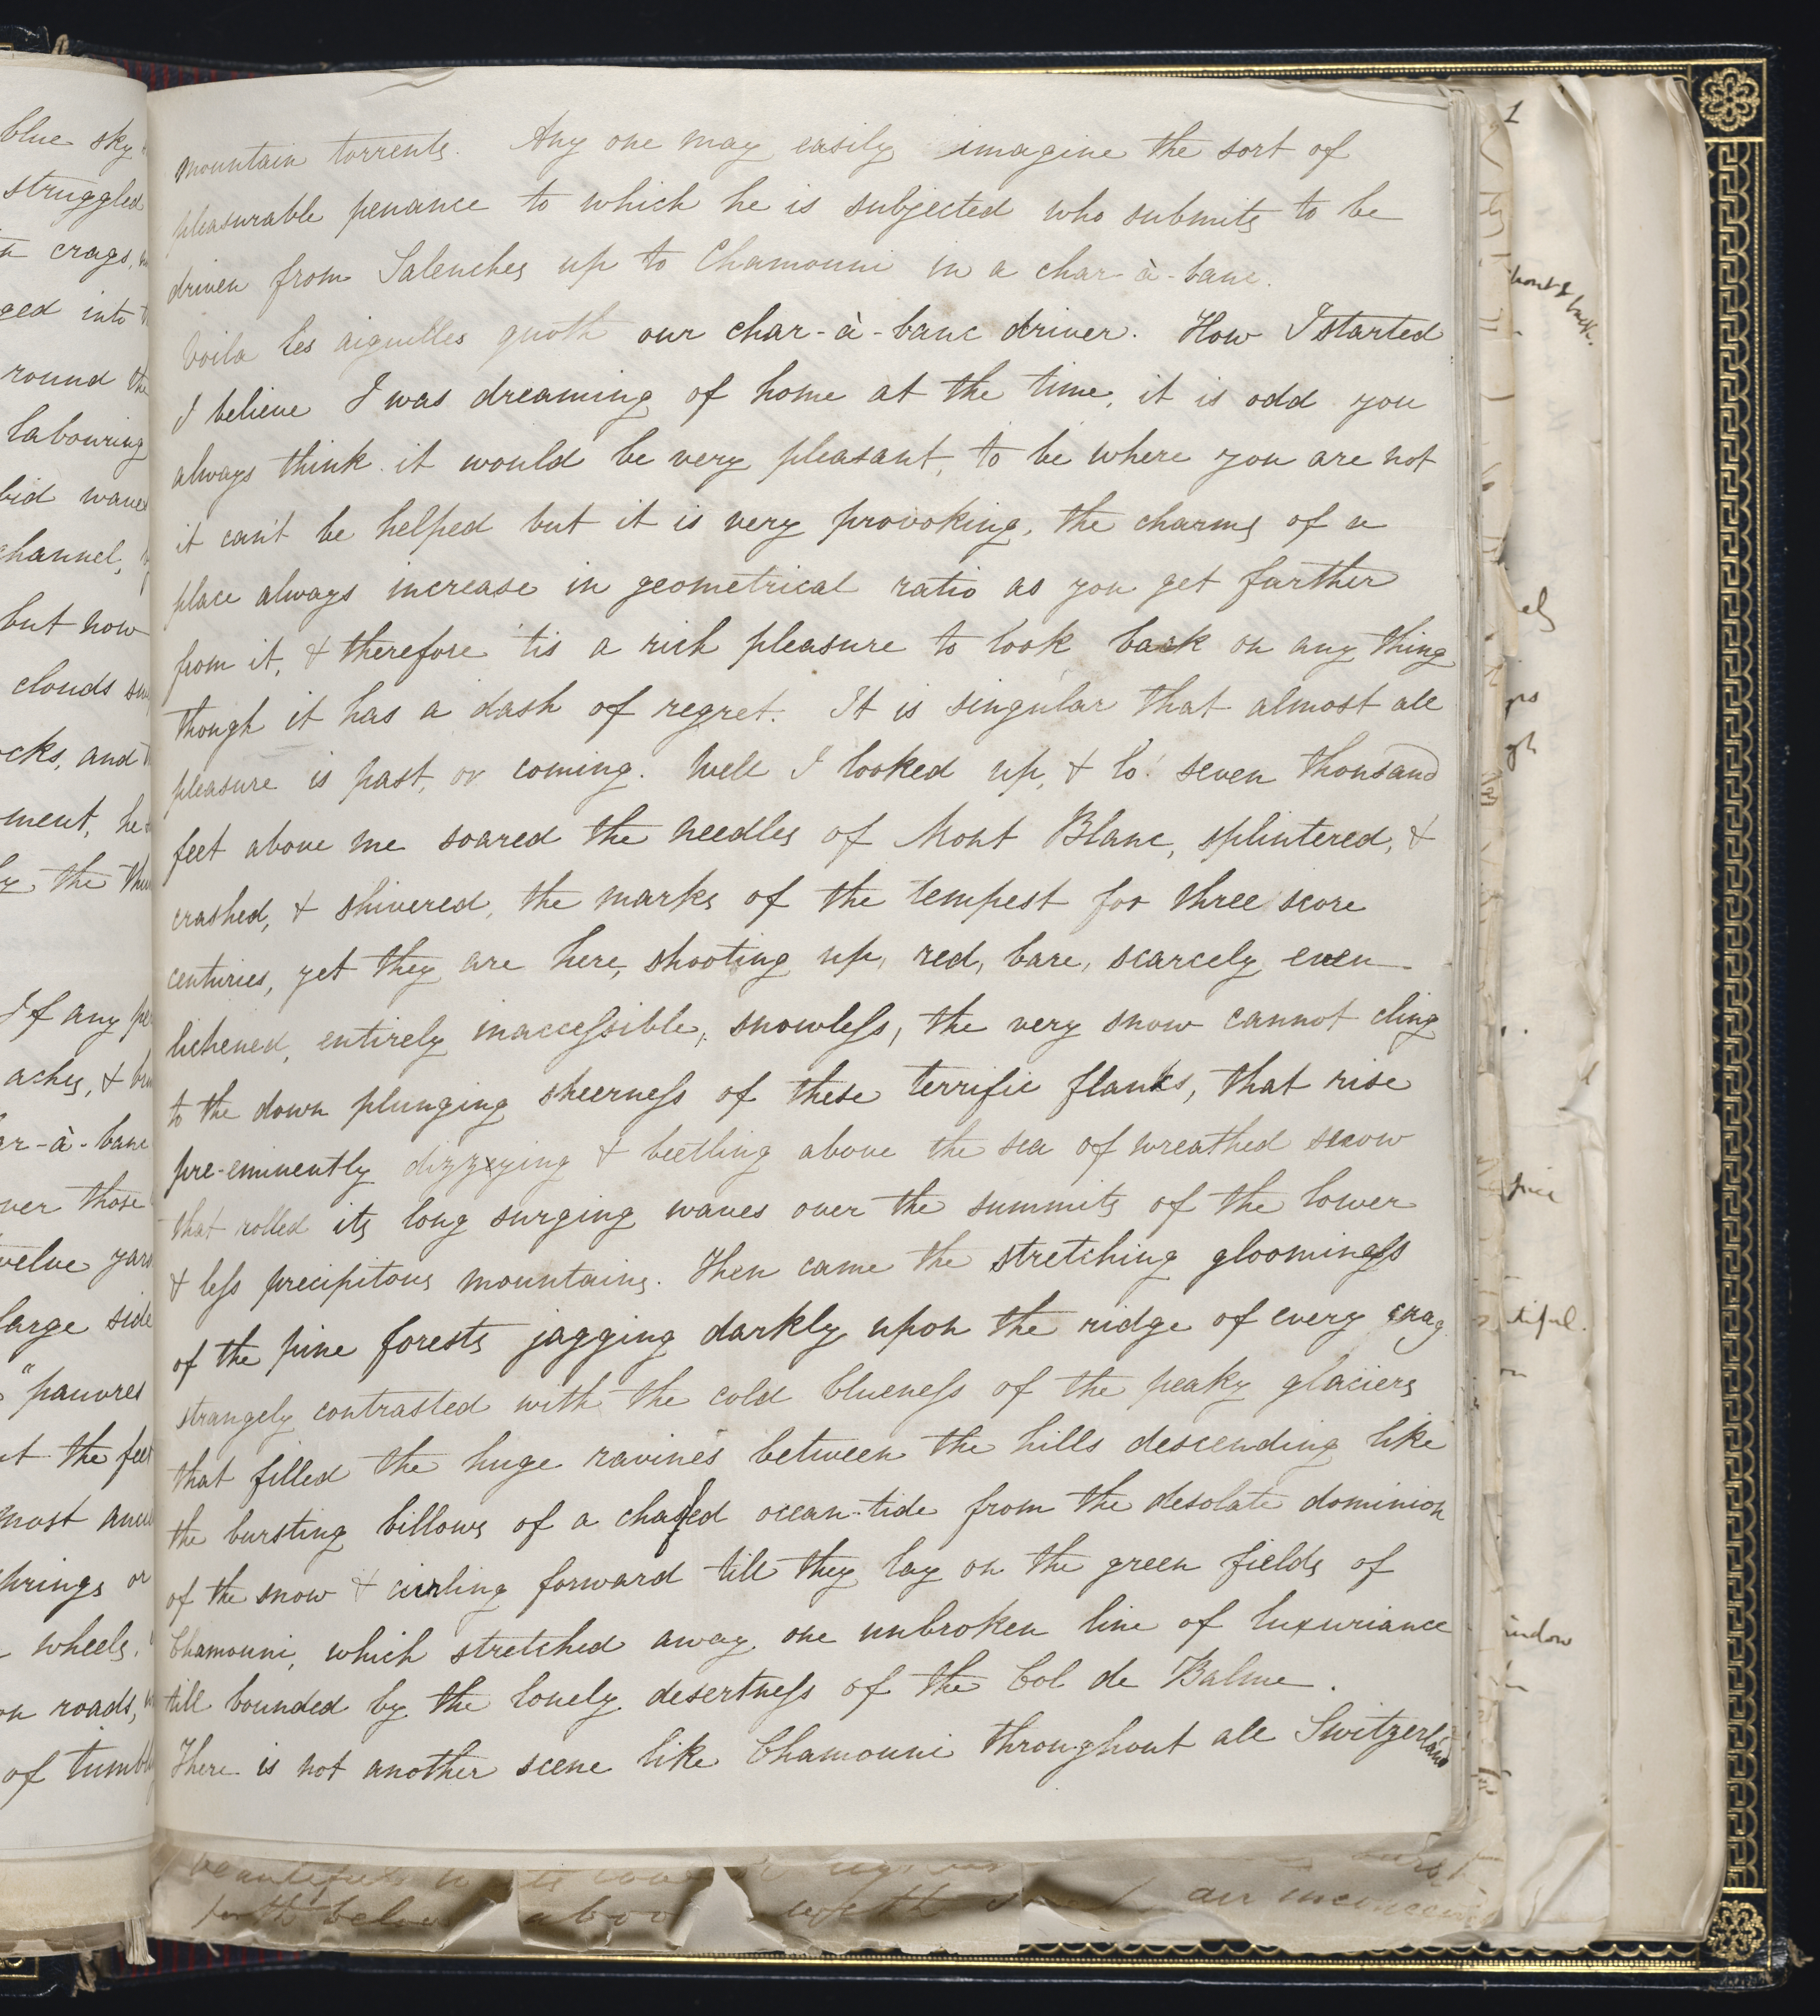 blue sky
struggled
crags,
ged into
round the
labouring
bid waves
channel,
but now
clouds
ocks, and
ment, he
the
If any
aches, &
ar-à-banc
ver those
twelve yards
large side
"pauvres
at the feet
most
springs or
wheels,
on roads,
of
mountain torrents. Any one may easily imagine the sort of
pleasurable penance to which he is subjected who submits to be
driven from Salenches up to Chamouni in a char-à-banc.
Voila les aiguilles quoth our char-à-banc driver. How I started
I believe I was dreaming of home at the time, it is odd you
always think it would be very pleasant, to be where you are not
it can't be helped but it is very provoking, the charms of a
place always increase in geometrical ratio as you get further
from it, & therefore 'tis a rich pleasure to look back on any thing
though it has a dash of regret. It is singular that almost all
pleasure is past, or coming. Well I looked up, & lo! seven thousand
feet above me soared the needles of Mont Blanc, splintered, &
crashed, & shivered, the marks of the tempest for three score
centuries, yet they are here, shooting up, red, bare, scarcely even
lichened, entirely inaccessible, snowless, the very snow cannot cling
to the down plunging sheerness of these terrific flanks, that rise
pre-eminently dizzying & beetling above the sea of wreathed snow
that rolled its long surging waves over the summits of the lower
& less precipitous mountains. Then came the stretching gloominess
of the pine forests jagging darkly upon the ridge of every crag
strangely contrasted with the cold blueness of the peaky glaciers
that filled the huge ravines between the hills descending like
the bursting billows of a chafed ocean-tide from the desolate dominion
of the snow & curling forward till they lay on the green fields of
Chamouni, which stretched away one unbroken line of luxuriance
till bounded by the lonely desertness of the Col de Balme.
There is not another scene like Chamouni throughout all Switzerland